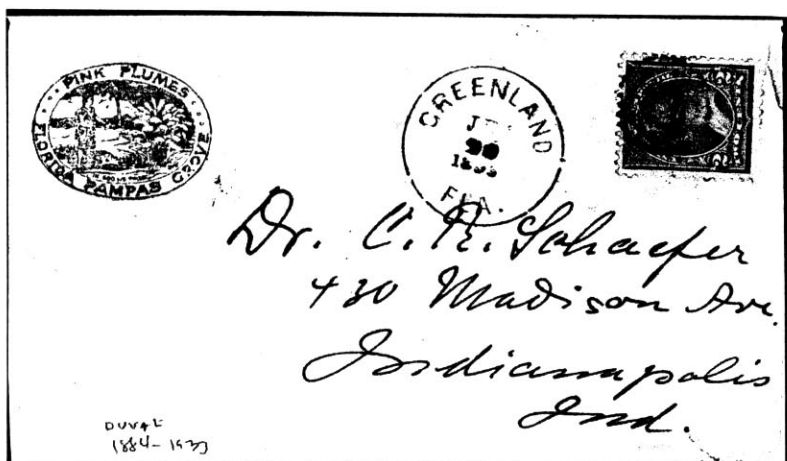 PINK PLUMES
FLORIDA PAMPAS GROVE
GREENLAND
FLA.
Dr. C. R. Schaefer
430 Madison Ave.
Indianapolis
Ind.
DUVAL